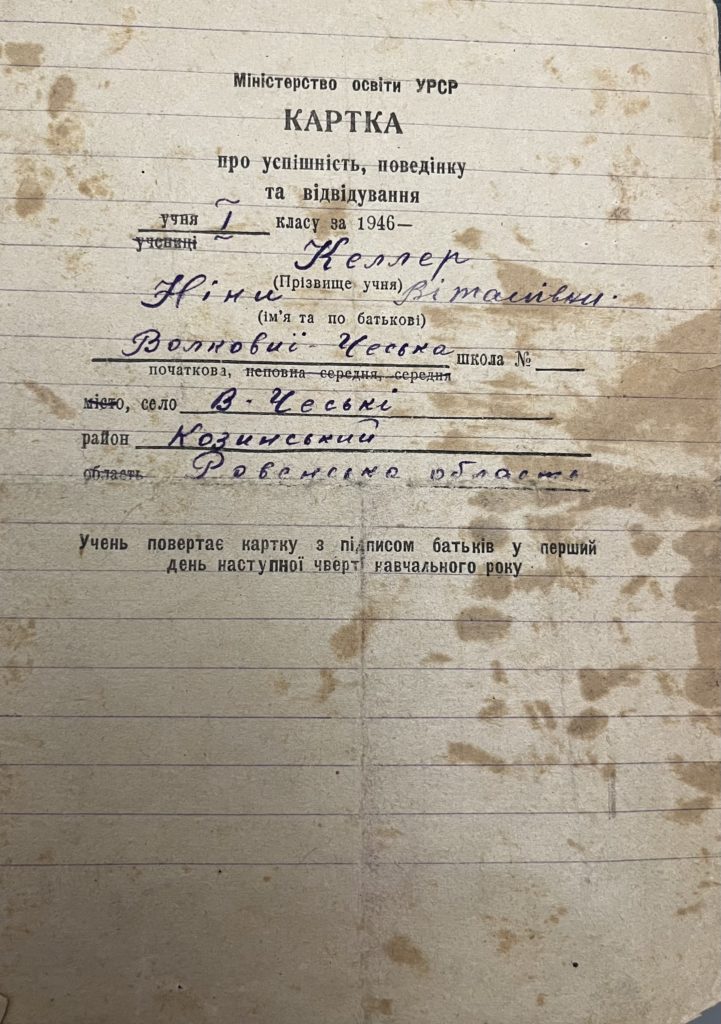 Міністерство освіти УРСР
КАРТКА
про успішність, поведінку
та відвідування
учня I класу за 1946—
учениці
Келлер
(Прізвище учня)
Ніни Віталівни.
(ім'я та по батькові)
Волковиї-Чеська школа №
початкова, неповна середня, середня
місто, село В-Чеські
район Козинський
область Ровенська область
Учень повертає картку з підписом батьків у перший
день наступної чверті навчального року